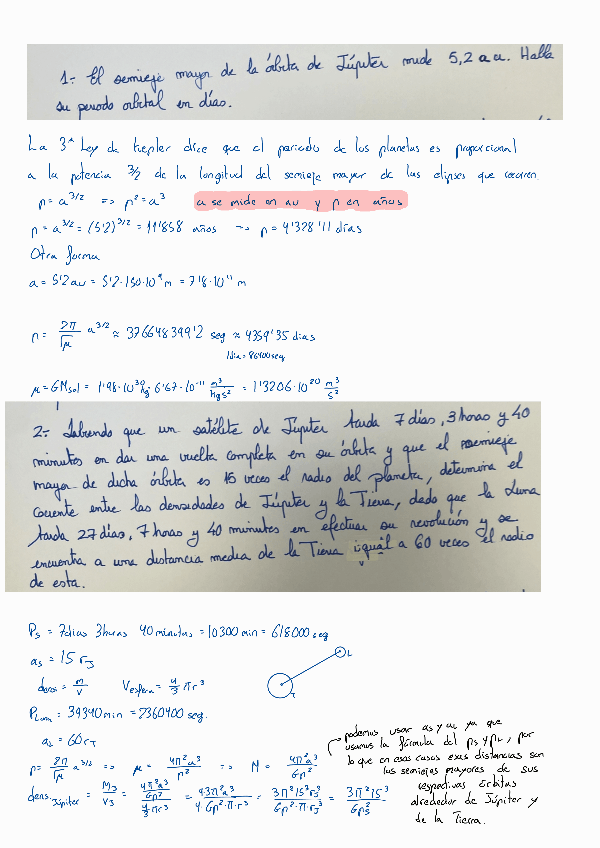 1.- El semieje mayor de la órbita de Júpiter mide 5,2 a.u. Halla
su periodo orbital en días.
La 3ª Ley de Kepler dice que el periodo de los planetas es proporcional
a la potencia 3/2 de la longitud del semieje mayor de las elipses que recorren.
p = a^{3/2} => p² = a³   a se mide en au y p en años
p = a^{3/2} = (5'2)^{3/2} = 11'858 años → p = 4'328'11 días
Otra forma
a = 5'2 au = 5'2·150·10⁹ m = 7'8·10¹¹ m
p = 2π/√μ a^{3/2} ≈ 376648399'2 seg ≈ 4359'35 días
1 día = 86400 seg
μ = GM_sol = 1'98·10³⁰ kg · 6'67·10⁻¹¹ m³/kg s² = 1'3206·10²⁰ m³/s²
2.- Sabiendo que un satélite de Júpiter tarda 7 días, 3 horas y 40
minutos en dar una vuelta completa en su órbita y que el semieje
mayor de dicha órbita es 15 veces el radio del planeta, determina el
cociente entre las densidades de Júpiter y la Tierra, dado que la Luna
tarda 27 días, 7 horas y 40 minutos en efectuar su revolución y se
encuentra a una distancia media de la Tierra igual a 60 veces el radio
de esta.
P_s = 7 días 3 horas 40 minutos = 10300 min = 618000 seg
a_s = 15 r_J
L
dens = m/V   V_esfera = 4/3 π r³
T
P_Luna = 39340 min = 2360400 seg.
a_L = 60 r_T
p = 2π/√μ a^{3/2} => μ = 4π²a³/p² => M = 4π²a³/Gp²
dens._Júpiter = M_J/V_J = (4π²a³/Gp²)/(4/3 π r³) = 4·3π²a³/4·Gp²·π·r³ = 3π²15³r_J³/Gp²·π·r_J³ = 3π²15³/Gp_s²
podemos usar a_s y a_L ya que
usamos la fórmula del p_s y p_L, por
lo que en esos casos esas distancias son
los semiejes mayores de sus
respectivas órbitas
alrededor de Júpiter y
de la Tierra.